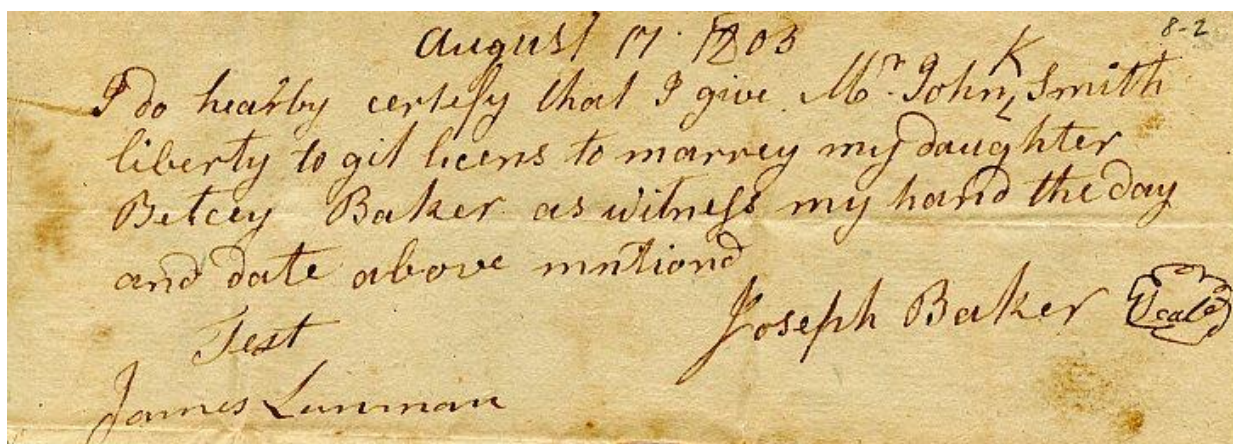 August 17. 1803
8-2
I do hearby certefy that I give Mr. John K Smith
liberty to git licens to marrey my daughter
Betcey Baker as witness my hand the day
and date above mntiond
Joseph Baker Seale
Test
James Lunman